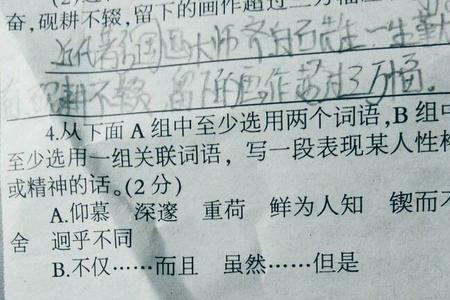 奋,砚耕不辍,留下的画作超过三万幅
近代著名国画大师齐白石先生一生勤
砚耕不辍 留下的画作超过3万幅。
4.从下面A组中至少选用两个词语,B组中
至少选用一组关联词语,写一段表现某人性格
或精神的话。(2分)
A.仰慕 深邃 重荷 鲜为人知 锲而不
舍 迥乎不同
B.不仅……而且 虽然……但是